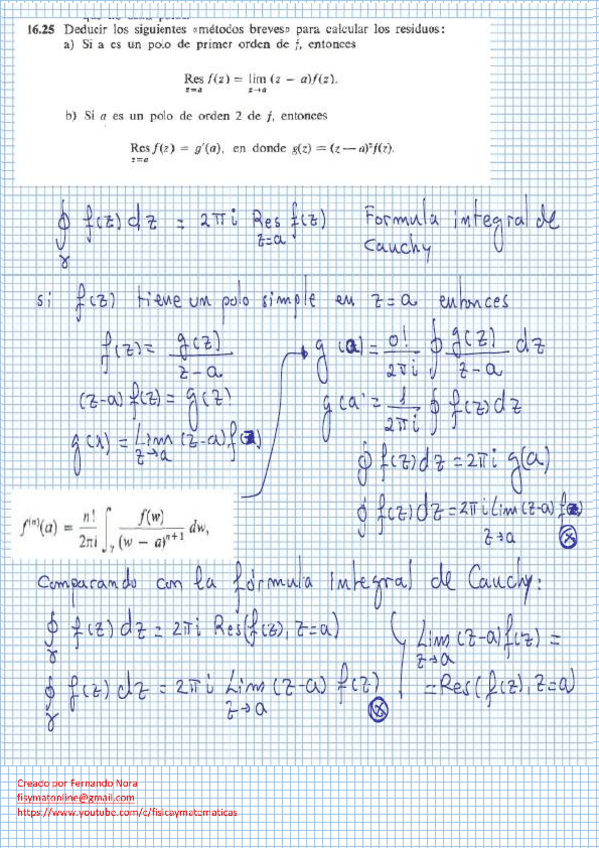 16.25 Deducir los siguientes «métodos breves» para calcular los residuos:
a) Si a es un polo de primer orden de f, entonces
Res f(z) = lím (z − a)f(z).
z=a z→a
b) Si a es un polo de orden 2 de f, entonces
Res f(z) = g′(a), en donde g(z) = (z — a)²f(z).
z=a
∮ f(z) dz = 2πi Res f(z) Formula integral de
γ z=a Cauchy
si f(z) tiene un polo simple en z=a entonces
f(z) = g(z)/(z-a)
g(a) = 0!/2πi ∮ g(z)/(z-a) dz
(z-a) f(z) = g(z)
g(a = 1/2πi ∮ f(z) dz
g(x) = Lim (z-a) f(z)
z→a
∮ f(z) dz = 2πi g(a)
∮ f(z) dz = 2πi Lim (z-a) f(z
z→a ⊗
f⁽ⁿ⁾(a) = n!/2πi ∫γ f(w)/(w − a)ⁿ⁺¹ dw,
Comparando con la fórmula integral de Cauchy:
∮ f(z) dz = 2πi Res(f(z), z=a)
γ
Lim (z-a) f(z) =
z→a
= Res(f(z), z=a)
∮ f(z) dz = 2πi Lim (z-a) f(z)
γ z→a ⊗
Creado por Fernando Nora
fisymatonline@gmail.com
https://www.youtube.com/c/fisicaymatematicas